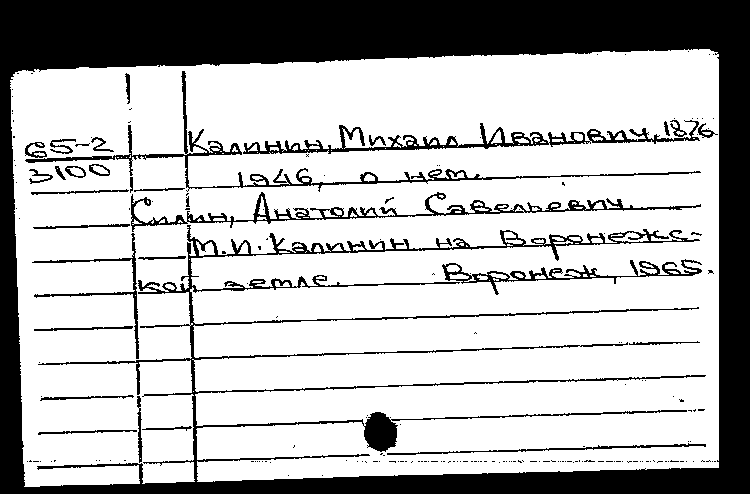 65-2
3100
Калинин, Михаил Иванович, 1876
1946, о нем.
Силин, Анатолий Савельевич.
М.И. Калинин на Воронежс-
кой земле. Воронеж, 1965.